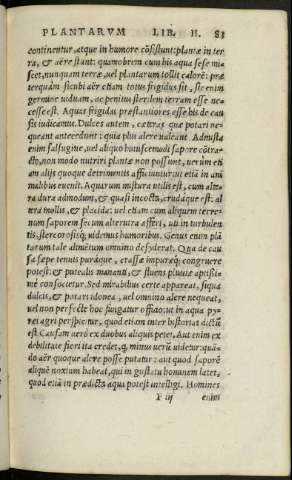 PLANTARVM LIB. II. 81
continentur, atque in humore cõsistunt: plantæ in ter
ra, & aëre stant: quamobrem cum his aqua sese mi
scet, nunquam terræ, uel plantarum tollit calorē: præ
terquàm sicubi aër etiam totus frigidus sit, sic enim
germine uiduam, ac penitus sterilem terram esse ne-
cesse est. Aquas frigidas præstantiores esse his de cau
sis iudicamus. Dulces autem, cæteras quæ potari ne-
queant antecedunt: quia plus alere ualeant. Adusta
enim salsugine, uel aliquo huiuscemodi sapore cõtra-
cto, non modo nutriri plantæ non possunt, uerùm eti
am alijs quoque detrimentis afficiuntur: ut etiã in ani
malibus euenit. Aquarum mistura utilis est, cum alte
ra dura admodum, & quasi incocta, crudáque est: al
tera mollis, & placida: uel etiam cum aliquem terre-
num saporem secum alterutra affert, uti in turbulen
tis, stercorosisq; uidemus humoribus. Genus enim plã
tarum tale alimētum omnino desyderat. Qua de cau
sa sæpe tenuis puráque, crassæ impuræq; congruere
potest: & putealis mananti, & fluens pluuiæ aptißi-
mè consocietur. Sed mirabilius certè appareat, siqua
dulcis, & potari idonea, uel omnino alere nequeat,
uel non perfectè hoc fungatur officio: ut in aqua py-
rœi agri perspicitur, quod etiam inter historias dictũ
est. Causam uerò ex duobus aliquis petet, Aut enim ex
debilitate fieri ita credet, q, minus uerũ uidetur: quã-
do aër quoque alere posse putatur: aut quod saporē
aliquē noxium habeat, qui in gustatu hominem latet,
quod etiã in prædicta aqua potest intelligi. Homines
enim